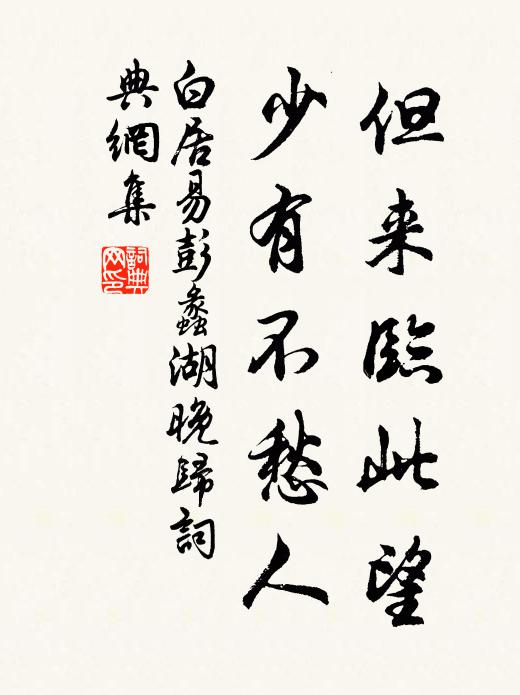 但来臨此望
少有不愁人
白居易彭蠡湖晚歸詞
典網集
詞典網印